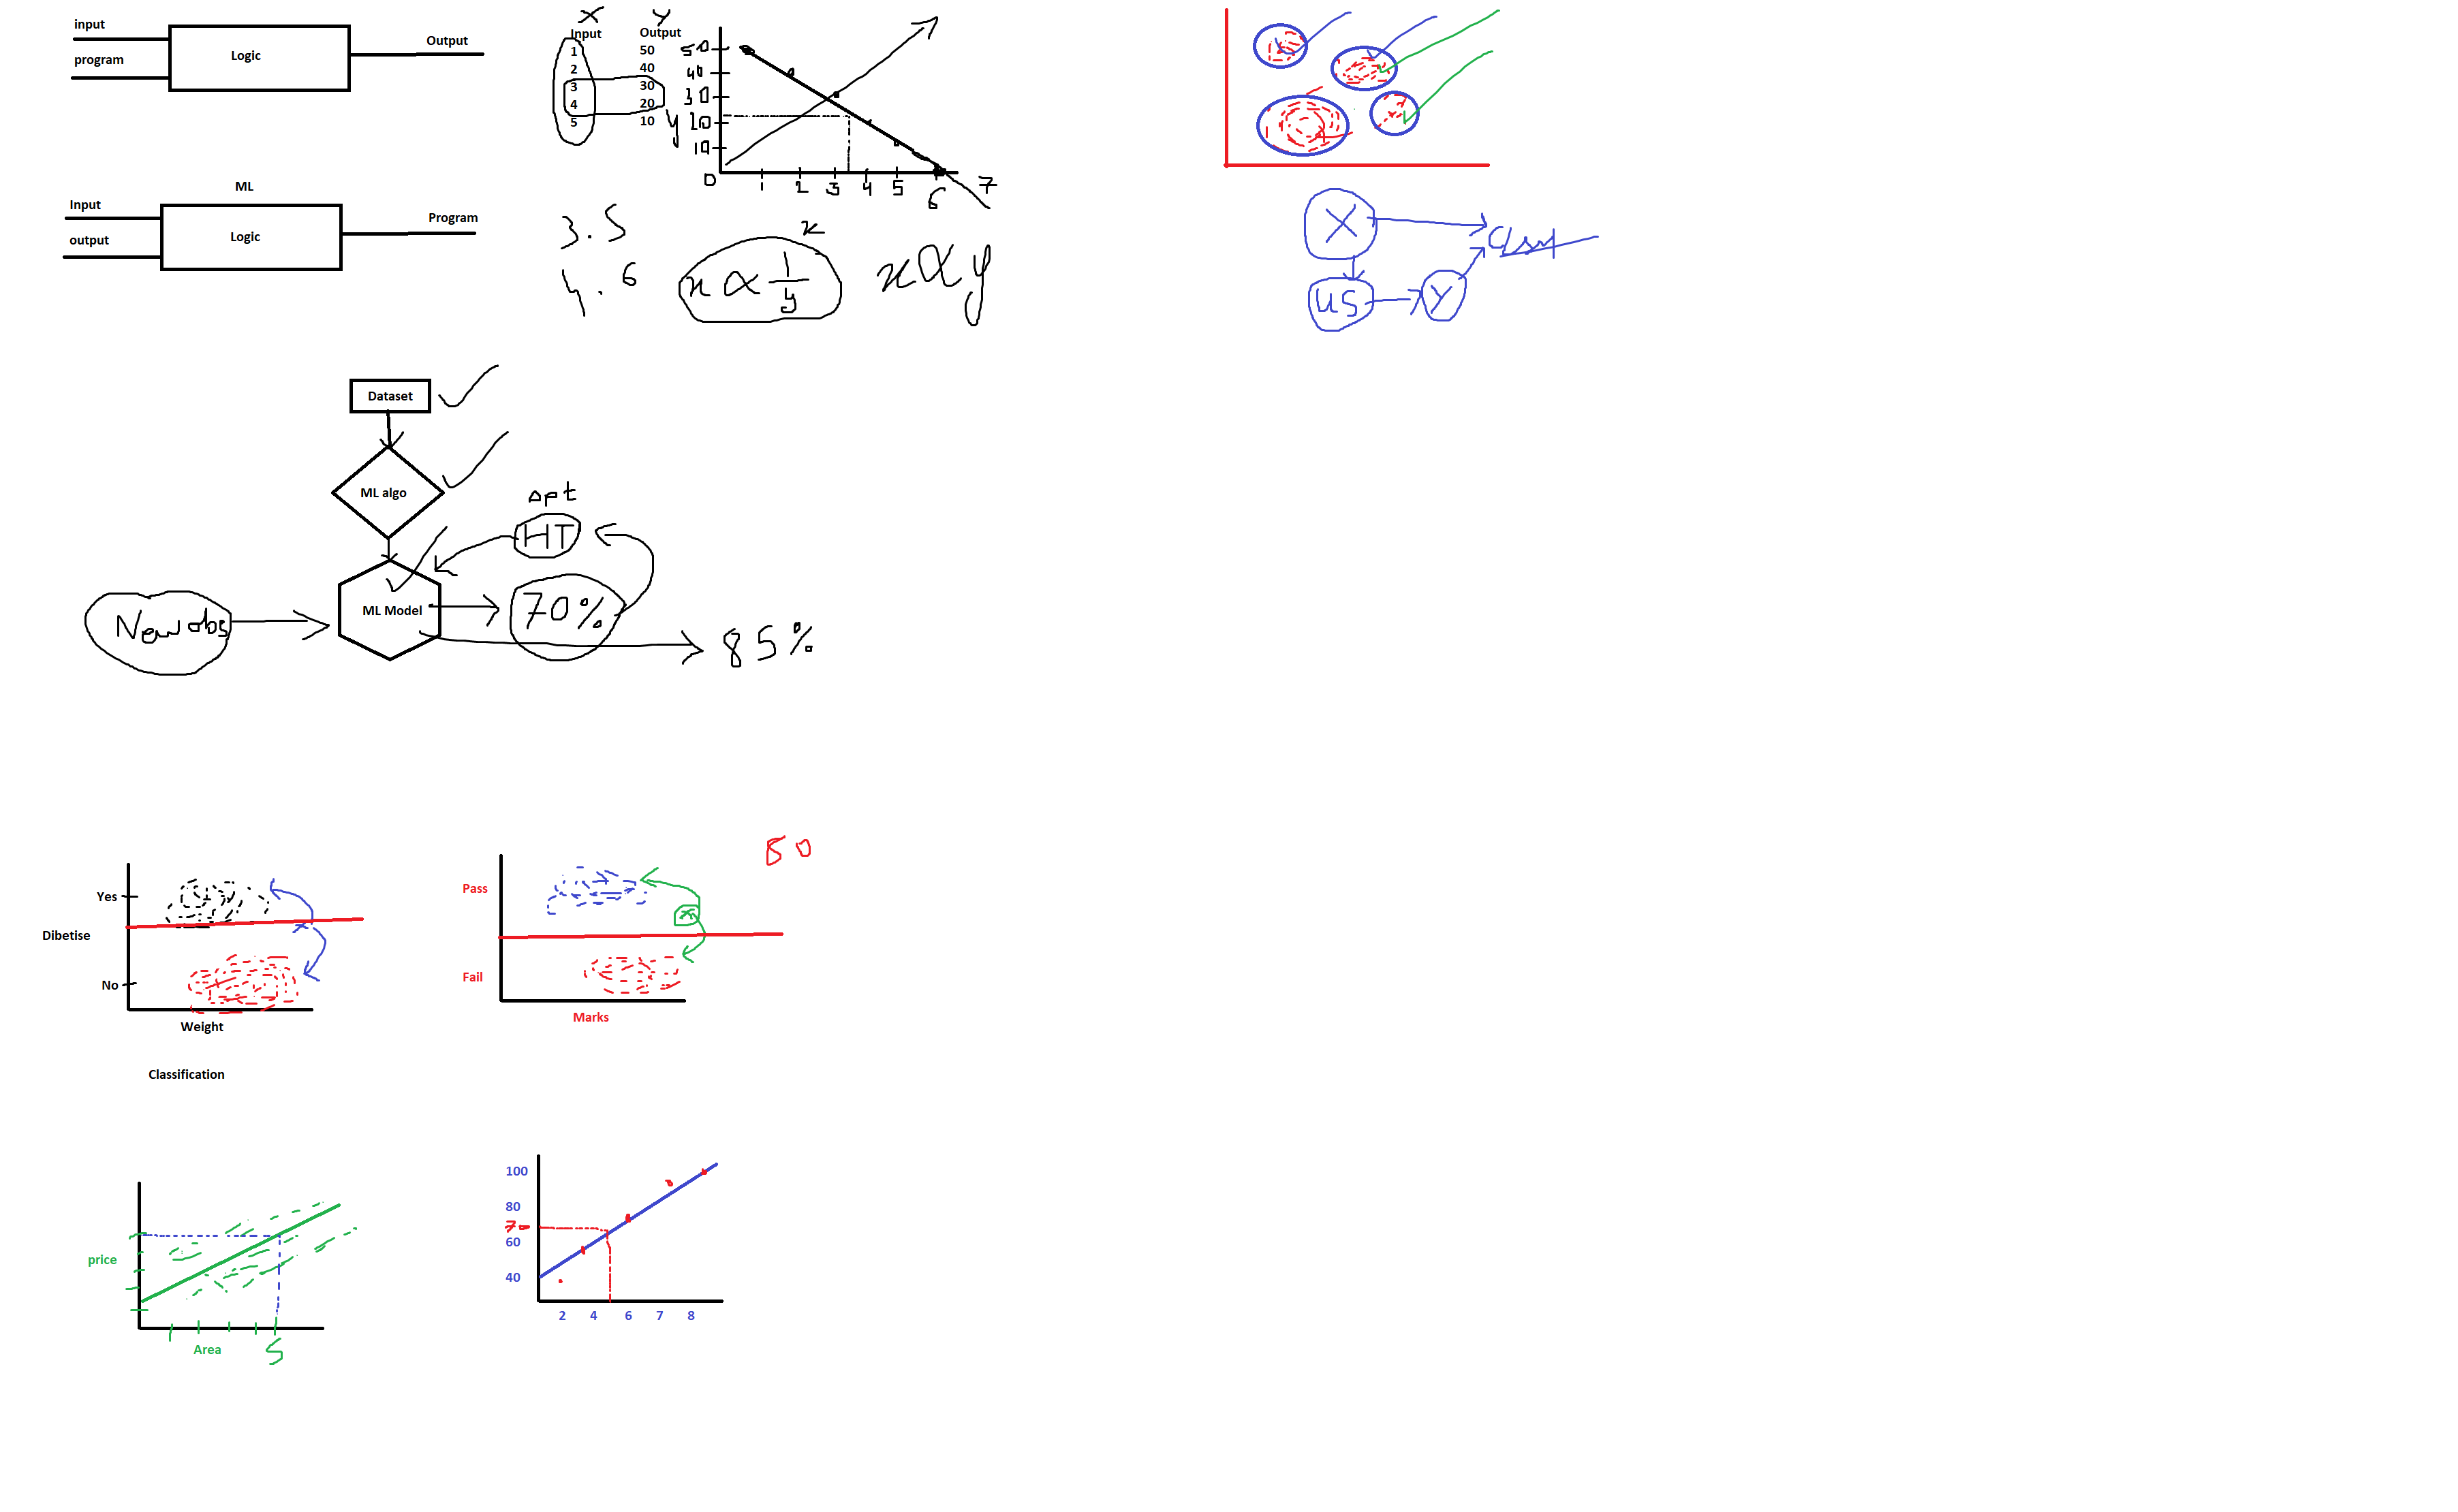 input
program
Logic
Output
ML
Input
output
Logic
Program
X Y
Input Output
1 50
2 40
3 30
4 20
5 10
50
40
30
20
10
0
1 2 3 4 5 6 7
y
x
3.5
4.6
x ∝ 1/y
x ∝ y
X
US
Y
Dataset
ML algo
opt
HT
ML Model
New obs
70%
85%
Yes
Dibetise
No
Weight
Classification
Pass
Fail
Marks
x
x
80
price
Area
5
100
80
70
60
40
2 4 6 7 8